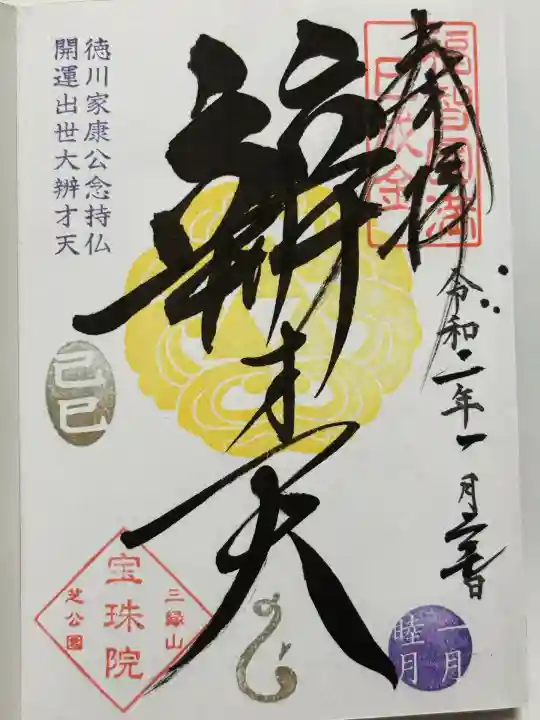 奉拝
福智圓満
巳成金
令和二年一月
辨才天
徳川家康公念持仏
開運出世大辨才天
己巳
三縁山
宝珠院
芝公園
一月
睦月